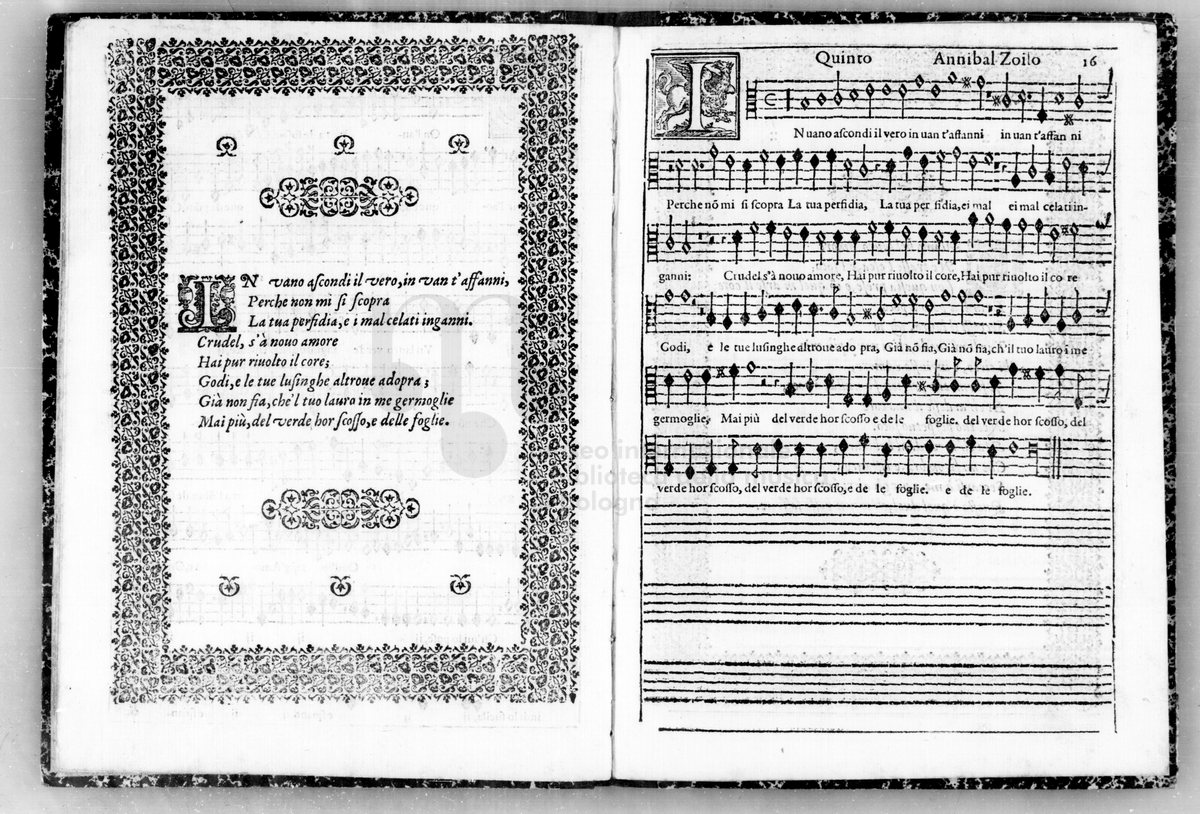 IN vano ascondi il vero, in van t'affanni,
Perche non mi si scopra
La tua perfidia, e i mal celati inganni.
Crudel, s'à nouo amore
Hai pur riuolto il core;
Godi, e le tue lusinghe altroue adopra;
Già non fia, che'l tuo lauro in me germoglie
Mai più, del verde hor scosso, e delle foglie.
Quinto Annibal Zoilo 16
IN uano ascondi il vero in uan t'affanni in uan t'affan ni
Perche nõ mi si scopra La tua perfidia, La tua per fidia, ei mal ei mal celati in-
ganni: Crudel s'à nouo amore, Hai pur riuolto il core, Hai pur riuolto il co re
Godi, e le tue lusinghe altroue ado pra, Già nõ fia, Già nõ fia, ch'il tuo lauro i me
germoglie, Mai più del verde hor scosso e de le foglie. del verde hor scosso, del
verde hor scosso, del verde hor scosso, e de le foglie. e de le foglie.